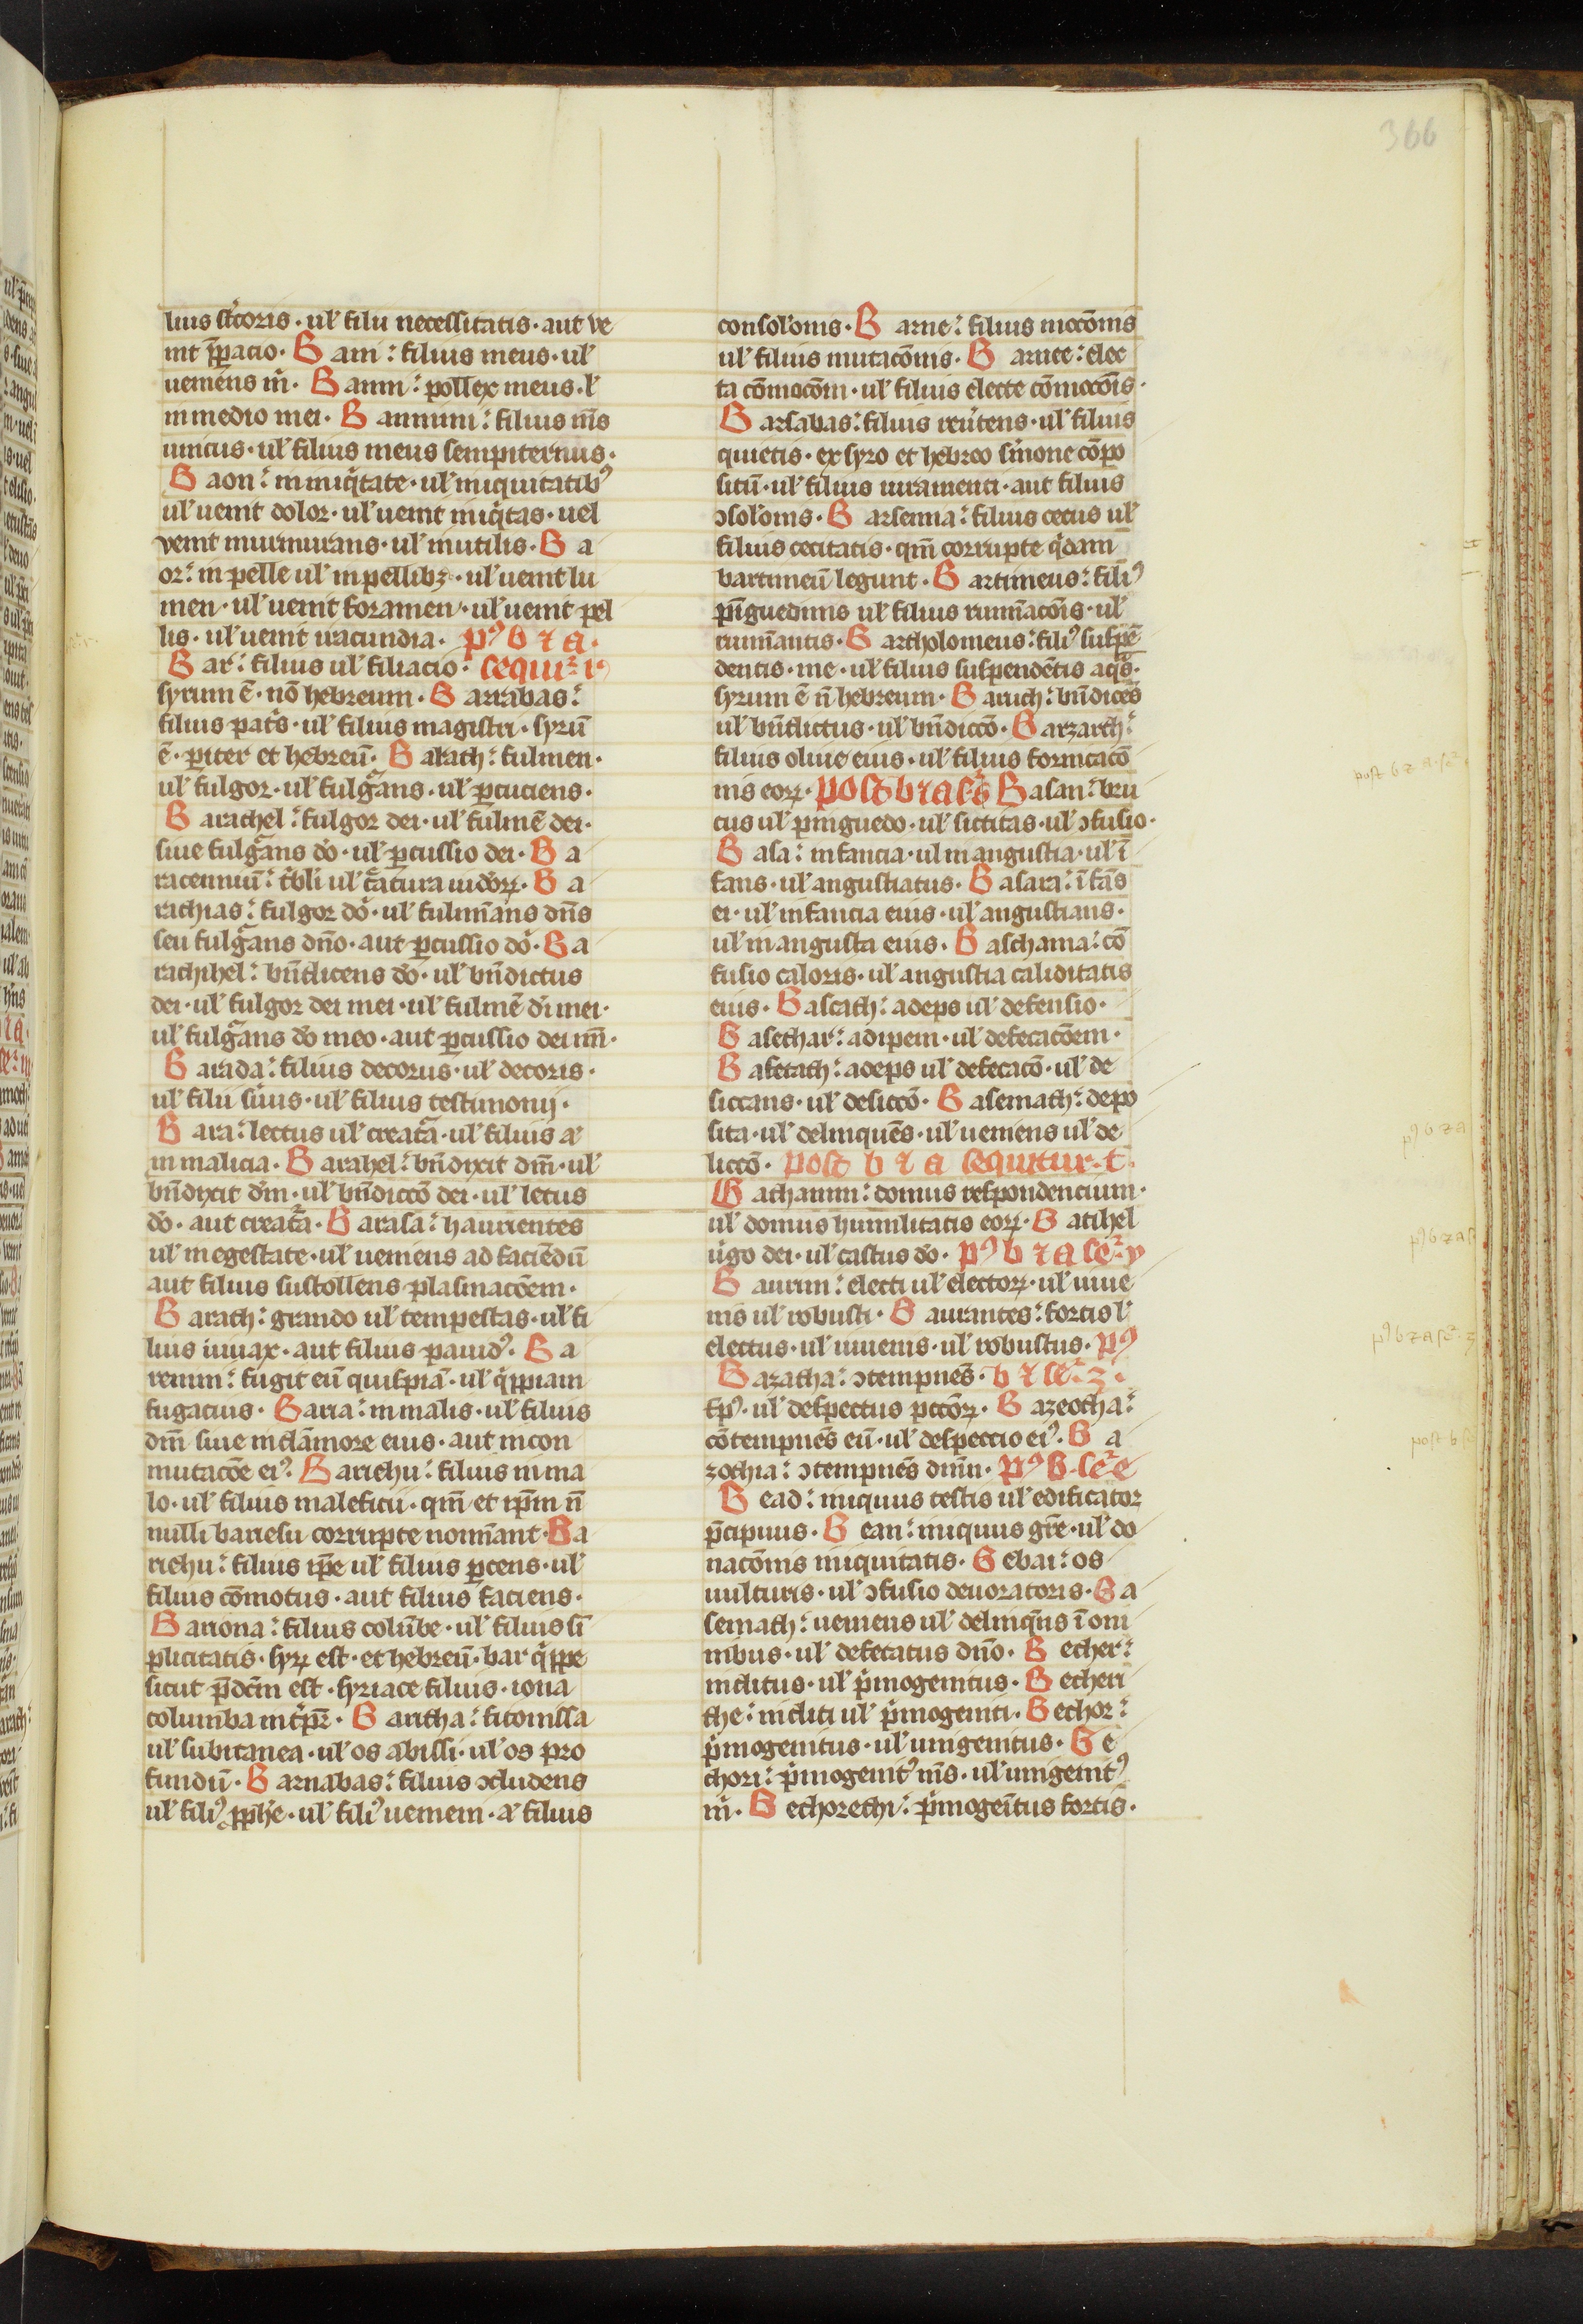 366
lius st͛coris · ul' filii necessitatis · aut ve
nit p̄paratio · Bani : filius meus · ul'
ueniens m̍ · Banni : pollex meus · l'
in medio mei · Bannim : filius m̄s
unicus · ul' filius meus sempiternus ·
Baon : in iniq̍tate · ul' iniquitatibꝰ
ul' uenit dolor · ul' uenit iniq̍tas · uel
venit murmurans · ul' inutilis · Ba
or : in pelle ul' in pellibꝫ · ul' uenit lu
men · ul' uenit foramen · ul' uenit pel
lis · ul' uenit iracundia · pꝰ b ⁊ a ·
Bar : filius ul' filiacio · sequit᷑ r
syrum ē · nō hebreum · Barrabas :
filius pat͛s · ul' filius magistri · syrū
ē · pariter et hebreū · Barach : fulmen ·
ul' fulgor · ul' fulgᷓans · ul' ꝑcuciens ·
Barachel : fulgor dei · ul' fulmē dei ·
siue fulgᷓans do̍ · ul' ꝑcussio dei · Ba
racennuū : t͛bli ul' c̍atura iudo̍ꝝ · Ba
rachias : fulgor do̍ · ul' fulmīans dn̄s
seu fulgᷓans dn̄o · aut ꝑcussio do̍ · Ba
rachihel : bn̄dicens do̍ · ul' bn̄dictus
dei · ul' fulgor dei mei · ul' fulmē di̍ mei ·
ul' fulgᷓans do̍ meo · aut ꝑcussio dei mī ·
Barada : filius decorus · ul' decoris ·
ul' filii sūus · ul' filius testimonij ·
Bara : lectus ul' creat̄a · ul' filius a̍
in malicia · Barahel : bn̄dixit dm̄ · ul'
bn̄dixit dm̄ · ul' bn̄diccō dei · ul' letus
do̍ · aut creat̄a · Barasa : haurientes
ul' in egestate · ul' ueniens ad faciēdū
aut filius sustollens plasmacōem ·
Barach : grando ul' tempestas · ul' fi
lius iuuax · aut filius pauidꝰ · Ba
renim : fugit eū quispiā · ul' q̍ppiam
fugacius · Baria : in malis · ul' filius
dm̄ siue in clāmore eius · aut in con
mutacōe eiꝰ · Bariehu : filius in ma
lo · ul' filius maleficii · qm̄ et ip̄m n̄
nulli bariesu corrupte nomīant · Ba
riehu : filius ip̄e ul' filius ꝑcens · ul'
filius cōmotus · aut filius faciens ·
Bariona : filius colūbe · ul' filius sī
plicitatis · syꝝ est · et hebreū · bar q̍ppe
sicut p̄dcm̄ est · syriace filius · iona
columba int͛pr̄ · Baritha : ficomissa
ul' subitanea · ul' os abissi · ul' os pro
fundū · Barnabas : filius ɔcludens
ul' filiꝰ ꝓph̄e · ul' filiꝰ uenieni · a̍ filius
consolo̍nis · Barne : filius mocōnis
ul' filius mutacōnis · Barnee : elec
ta cōmocōni · ul' filius electe cōmocōis ·
Barsabas : filius reūtens · ul' filius
quietis · ex syro et hebreo sm̍one cōpo
sitū · ul' filius iuramenti · aut filius
ɔsolo̍nis · Barsemia : filius cecus ul'
filius cecitatis · qm̄ corrupte q̍dam
bartimeū legunt · Bartimeus : filiꝰ
pīguedinis ul' filius rumīacōis · ul'
rumīantis · Bartholomeus : filiꝰ suspē
dentis · me · ul' filius suspendētis aq̍s ·
syrum ē n̄ hebreum · Baruch : bn̄dicēs
ul' bn̄dictus · ul' bn̄diccō · Barzarth :
filius oliue eius · ul' filius fornicacō
nis eoꝝ · post b ⁊ a s͛ s Basan : bru
cus ul' pinguedo · ul' siccitas · ul' ɔfusio ·
Basa : infancia · ul' in angustia · ul' ī
fans · ul' angustiatus · Basara : īfās
ei · ul' infancia eius · ul' angustians ·
ul' in angusta eius · Baschama : cō
fusio caloris · ul' angustia caliditatis
eius · Bascath : adeps ul' defensio ·
Basethar : adipem · ul' defecacōem ·
Basetach : adeps ul' defecacō · ul' de
siccans · ul' desiccō · Basemath : depo
sita · ul' delinquēs · ul' ueniens ul' de
liccō · post b ⁊ a sequitur · t ·
Bathanim : domus respondencium ·
ul' domus humilitatis eoꝝ · Batihel
ūgo dei · ul' castus do̍ · pꝰ b ⁊ a se᷑ · v
Baurim : electi ul' electoꝝ · ul' iuue
nis ul' robusti · Baurantes : fortis l'
electus · ul' iuuenis · ul' robustus · pꝰ
Bazatha : ɔtempnēs · b ⁊ se᷑ · z ·
sp̄ · ul' despectus pccōꝝ · Bazeotha :
cōtempnēs eū · ul' despeccio eiꝰ · Ba
zothia : ɔtempnēs dnm̄ · pꝰ b · se᷑ e
Bead : iniquus testis ul' edificator
p̄cipuus · Bean : iniquus gr̄e · ul' do
nacōnis iniquitatis · Bebai : os
uulturis · ul' ɔfusio deuoratoris · Ba
semath : ueniens ul' delinq̄ns ī om
nibus · ul' defecatus dn̄o · Becher :
inclitus · ul' p̍mogenitus · Becheri
the : incliti ul' p̍mogeniti · Bechor :
p̍mogenitus · ul' unigenitus · Be
chori : p̍mogenitꝰ m̄s · ul' unigenitꝰ
m̍ · Bechorethi : p̍mogenītus fortis ·
post b ⁊ a · se᷑
pꝰ b ⁊ a
pꝰ b ⁊ a s
pꝰ b ⁊ a se᷑ · z
post b